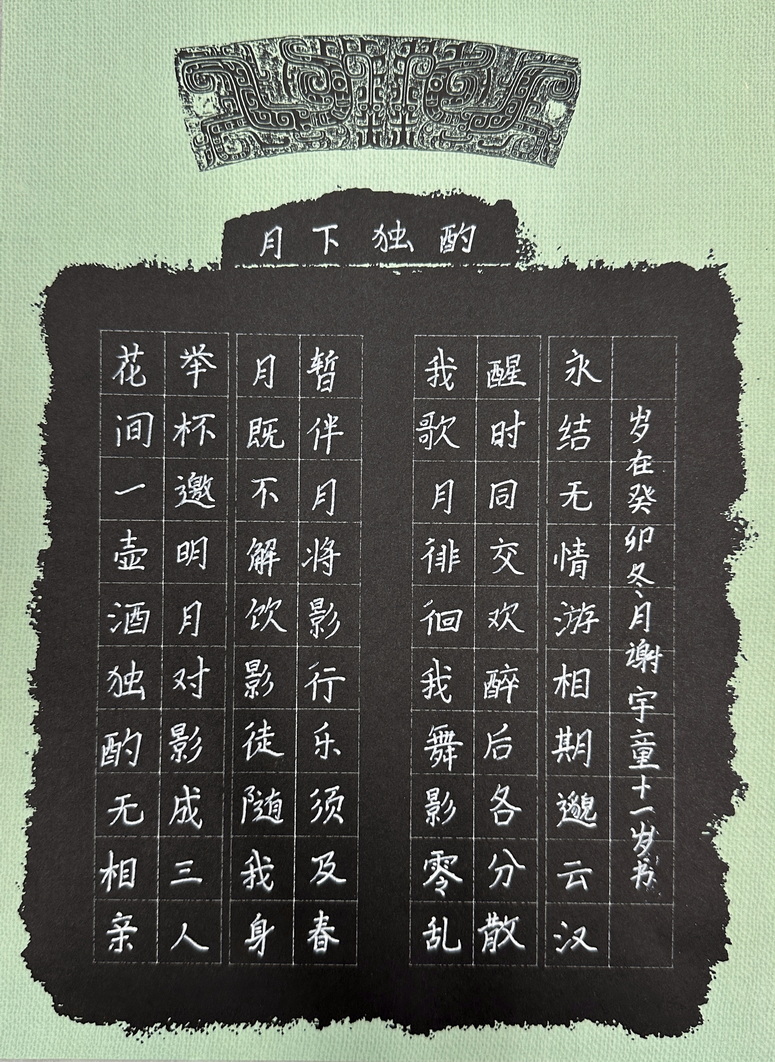 月下独酌
花间一壶酒独酌无相亲
举杯邀明月对影成三人
月既不解饮影徒随我身
暂伴月将影行乐须及春
我歌月徘徊我舞影零乱
醒时同交欢醉后各分散
永结无情游相期邈云汉
岁在癸卯冬月谢宇童十一岁书